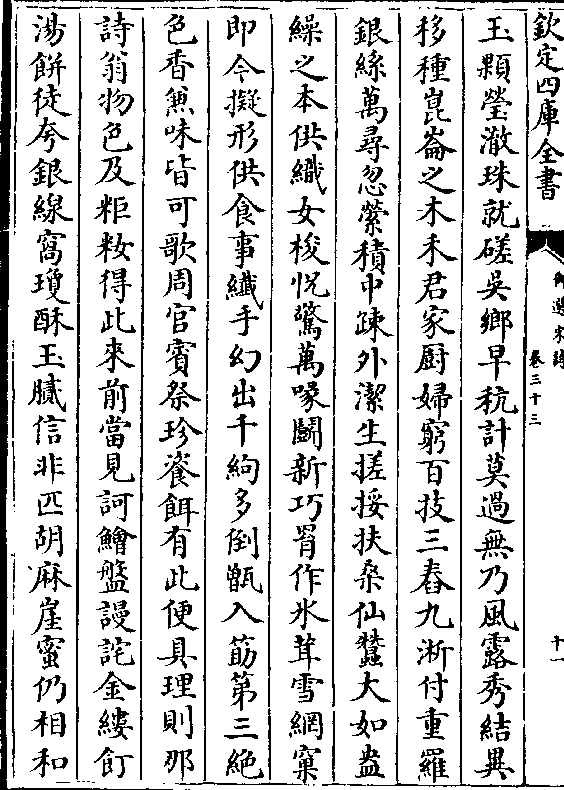 欽定四庫全書
御選宋詩
卷三十三
十一
玉顆瑩澈珠就磋吳鄉早秔計莫過無乃風露秀結異
移種崑崙之木禾君家厨婦窮百技三舂九淅付重羅
銀絲萬尋忽縈積中疎外潔生搓挼扶桒仙蠶大如盎
繰之本供織女梭怳驚萬喙鬭新巧胥作氷茸雪網窠
即令擬形供食事纎手幻出千絇多倒甑入筯第三絶
色香兼味皆可歌周官賓祭珍餈餌有此便具理則那
詩翁物色及粔籹得此來前當見訶鱠盤謾詫金縷飣
湯餅徒夸銀線窩瓊酥玉膩信非匹胡麻崖蜜仍相和